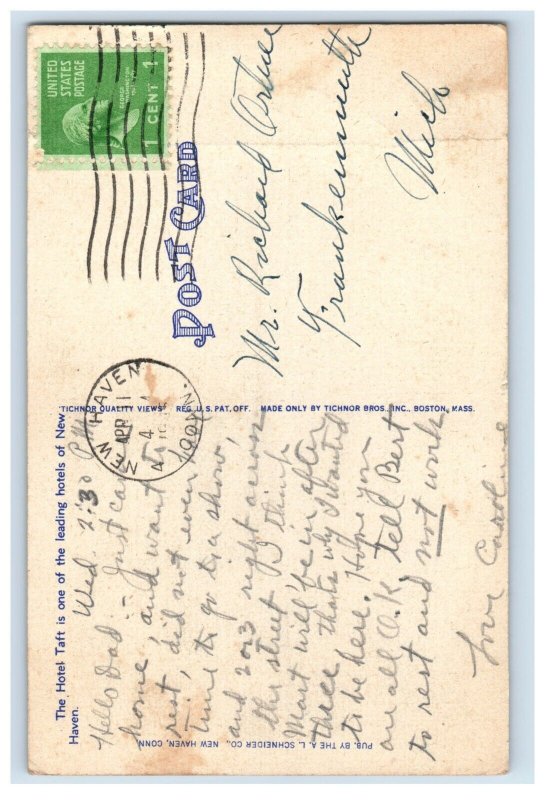 The Hotel Taft is one of the leading hotels of New
Haven.
Wed. 2:30 P.M.
Hello Dad — Just came
home, and want to
rest, did not even
time to go to a show,
and 2 or 3 right across
the street. I think
Mart will be in after
three thats why I wanted
to be here. Hope you
are all O.K. tell Bert
to rest and not work
Love Caroline
PUB. BY THE A. L. SCHNEIDER CO., NEW HAVEN, CONN
"TICHNOR QUALITY VIEWS" REG. U. S. PAT. OFF. MADE ONLY BY TICHNOR BROS., INC., BOSTON, MASS.
NEW HAVEN CONN.
APR 1
4
POST CARD
UNITED
STATES
POSTAGE
GEORGE
WASHINGTON
1 CENT 1
Mr. Richard
Frankenmuth
Mich